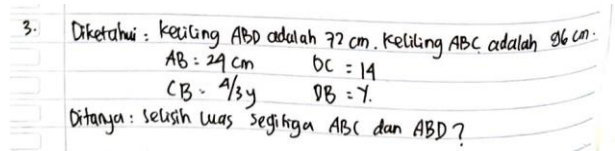 3. Diketahui : keliling ABD adalah 72 cm. Keliling ABC adalah 96 cm.
AB = 24 cm DC = 14
CB = 4/3 y DB = Y.
Ditanya : selisih luas segitiga ABC dan ABD ?